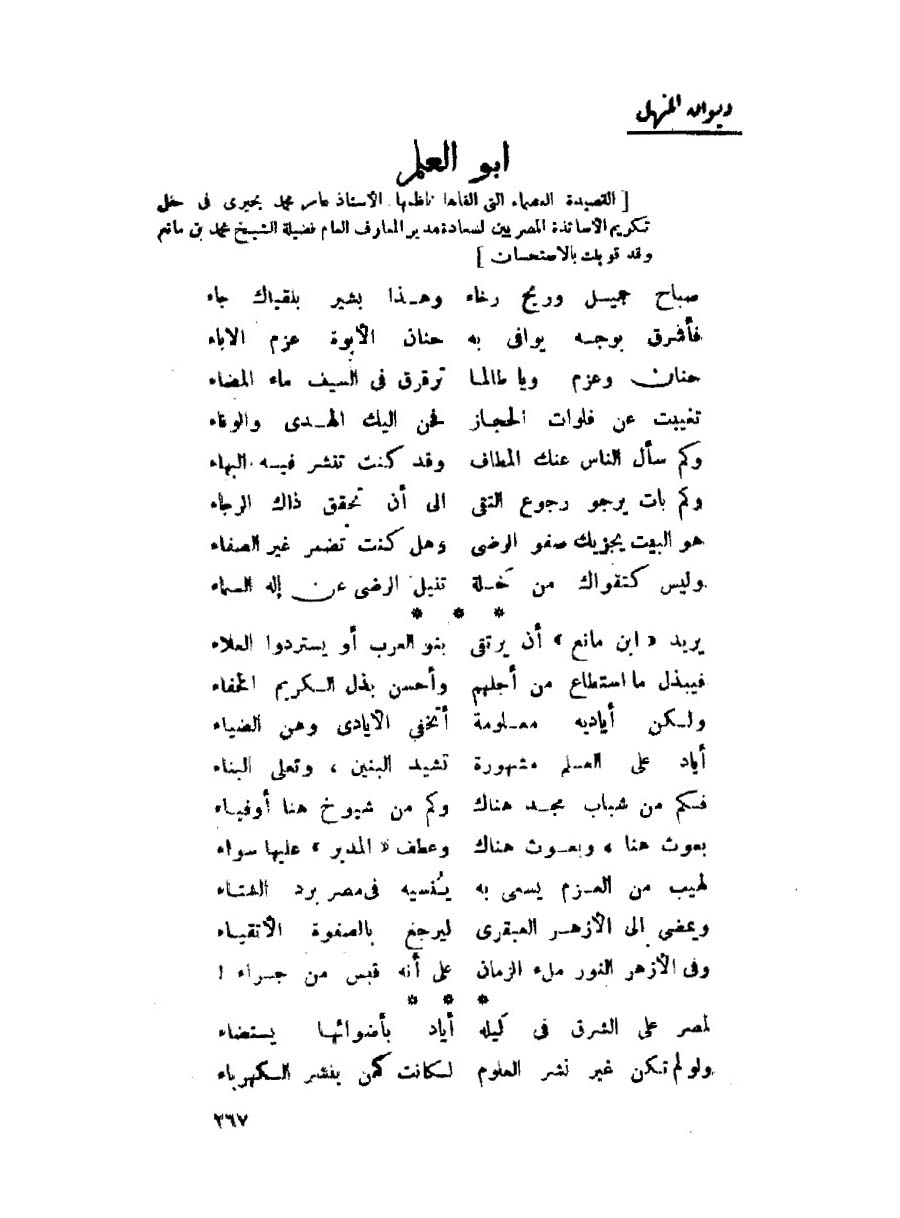 ديوان المنهل
ابو العلم
[ القصيدة العصماء التى القاها ناظمها الأستاذ عامر محمد بحيرى فى حفل
تكريم الأساتذة المصريين لسعادة مدير المعارف العام فضيلة الشيخ محمد بن مانع
وقد قوبلت بالاستحسان ]
صباح جميل وريح رخاء وهذا بشير بلقياك جاء
فأشرق بوجه يوافى به حنان الأبوة عزم الاباء
حنان وعزم ويا طالما ترقرق فى السيف ماء المضاء
تغيبت عن فلوات الحجاز فحن اليك الهدى والوفاء
وكم سأل الناس عنك المطاف وقد كنت تنشر فيه البهاء
وكم بات يرجو رجوع التقى الى أن تحقق ذاك الرجاء
هو البيت يجزيك صفو الرضى وهل كنت تضمر غير الصفاء
وليس كتقواك من خلة تنيل الرضى عن إله السماء
* * *
يريد « ابن مانع » أن يرتقى بنو العرب أو يستردوا العلاء
فيبذل ما استطاع من أجلهم وأحسن بذل الكريم الخفاء
ولكن أياديه معلومة أتخفي الأيادى وهن الضياء
أياد على العلم مشهورة تشيد البنين ، وتعلى البناء
فكم من شباب مجد هناك وكم من شيوخ هنا أوفياء
بعوث هنا ، وبعوث هناك وعطف « المدير » عليها سواء
لهيب من العزم يسعى به يُنسيه فى مصر برد الشتاء
ويمضي الى الأزهر العبقرى ليرجع بالصفوة الأتقياء
وفى الأزهر النور ملء الزمان على أنه قبس من حراء !
* * *
لمصر على الشرق فى كيله أياد بأضوائها يستضاء
ولو لم تكن غير نشر العلوم لكانت كمن ينشر الكهرباء
٣٦٧